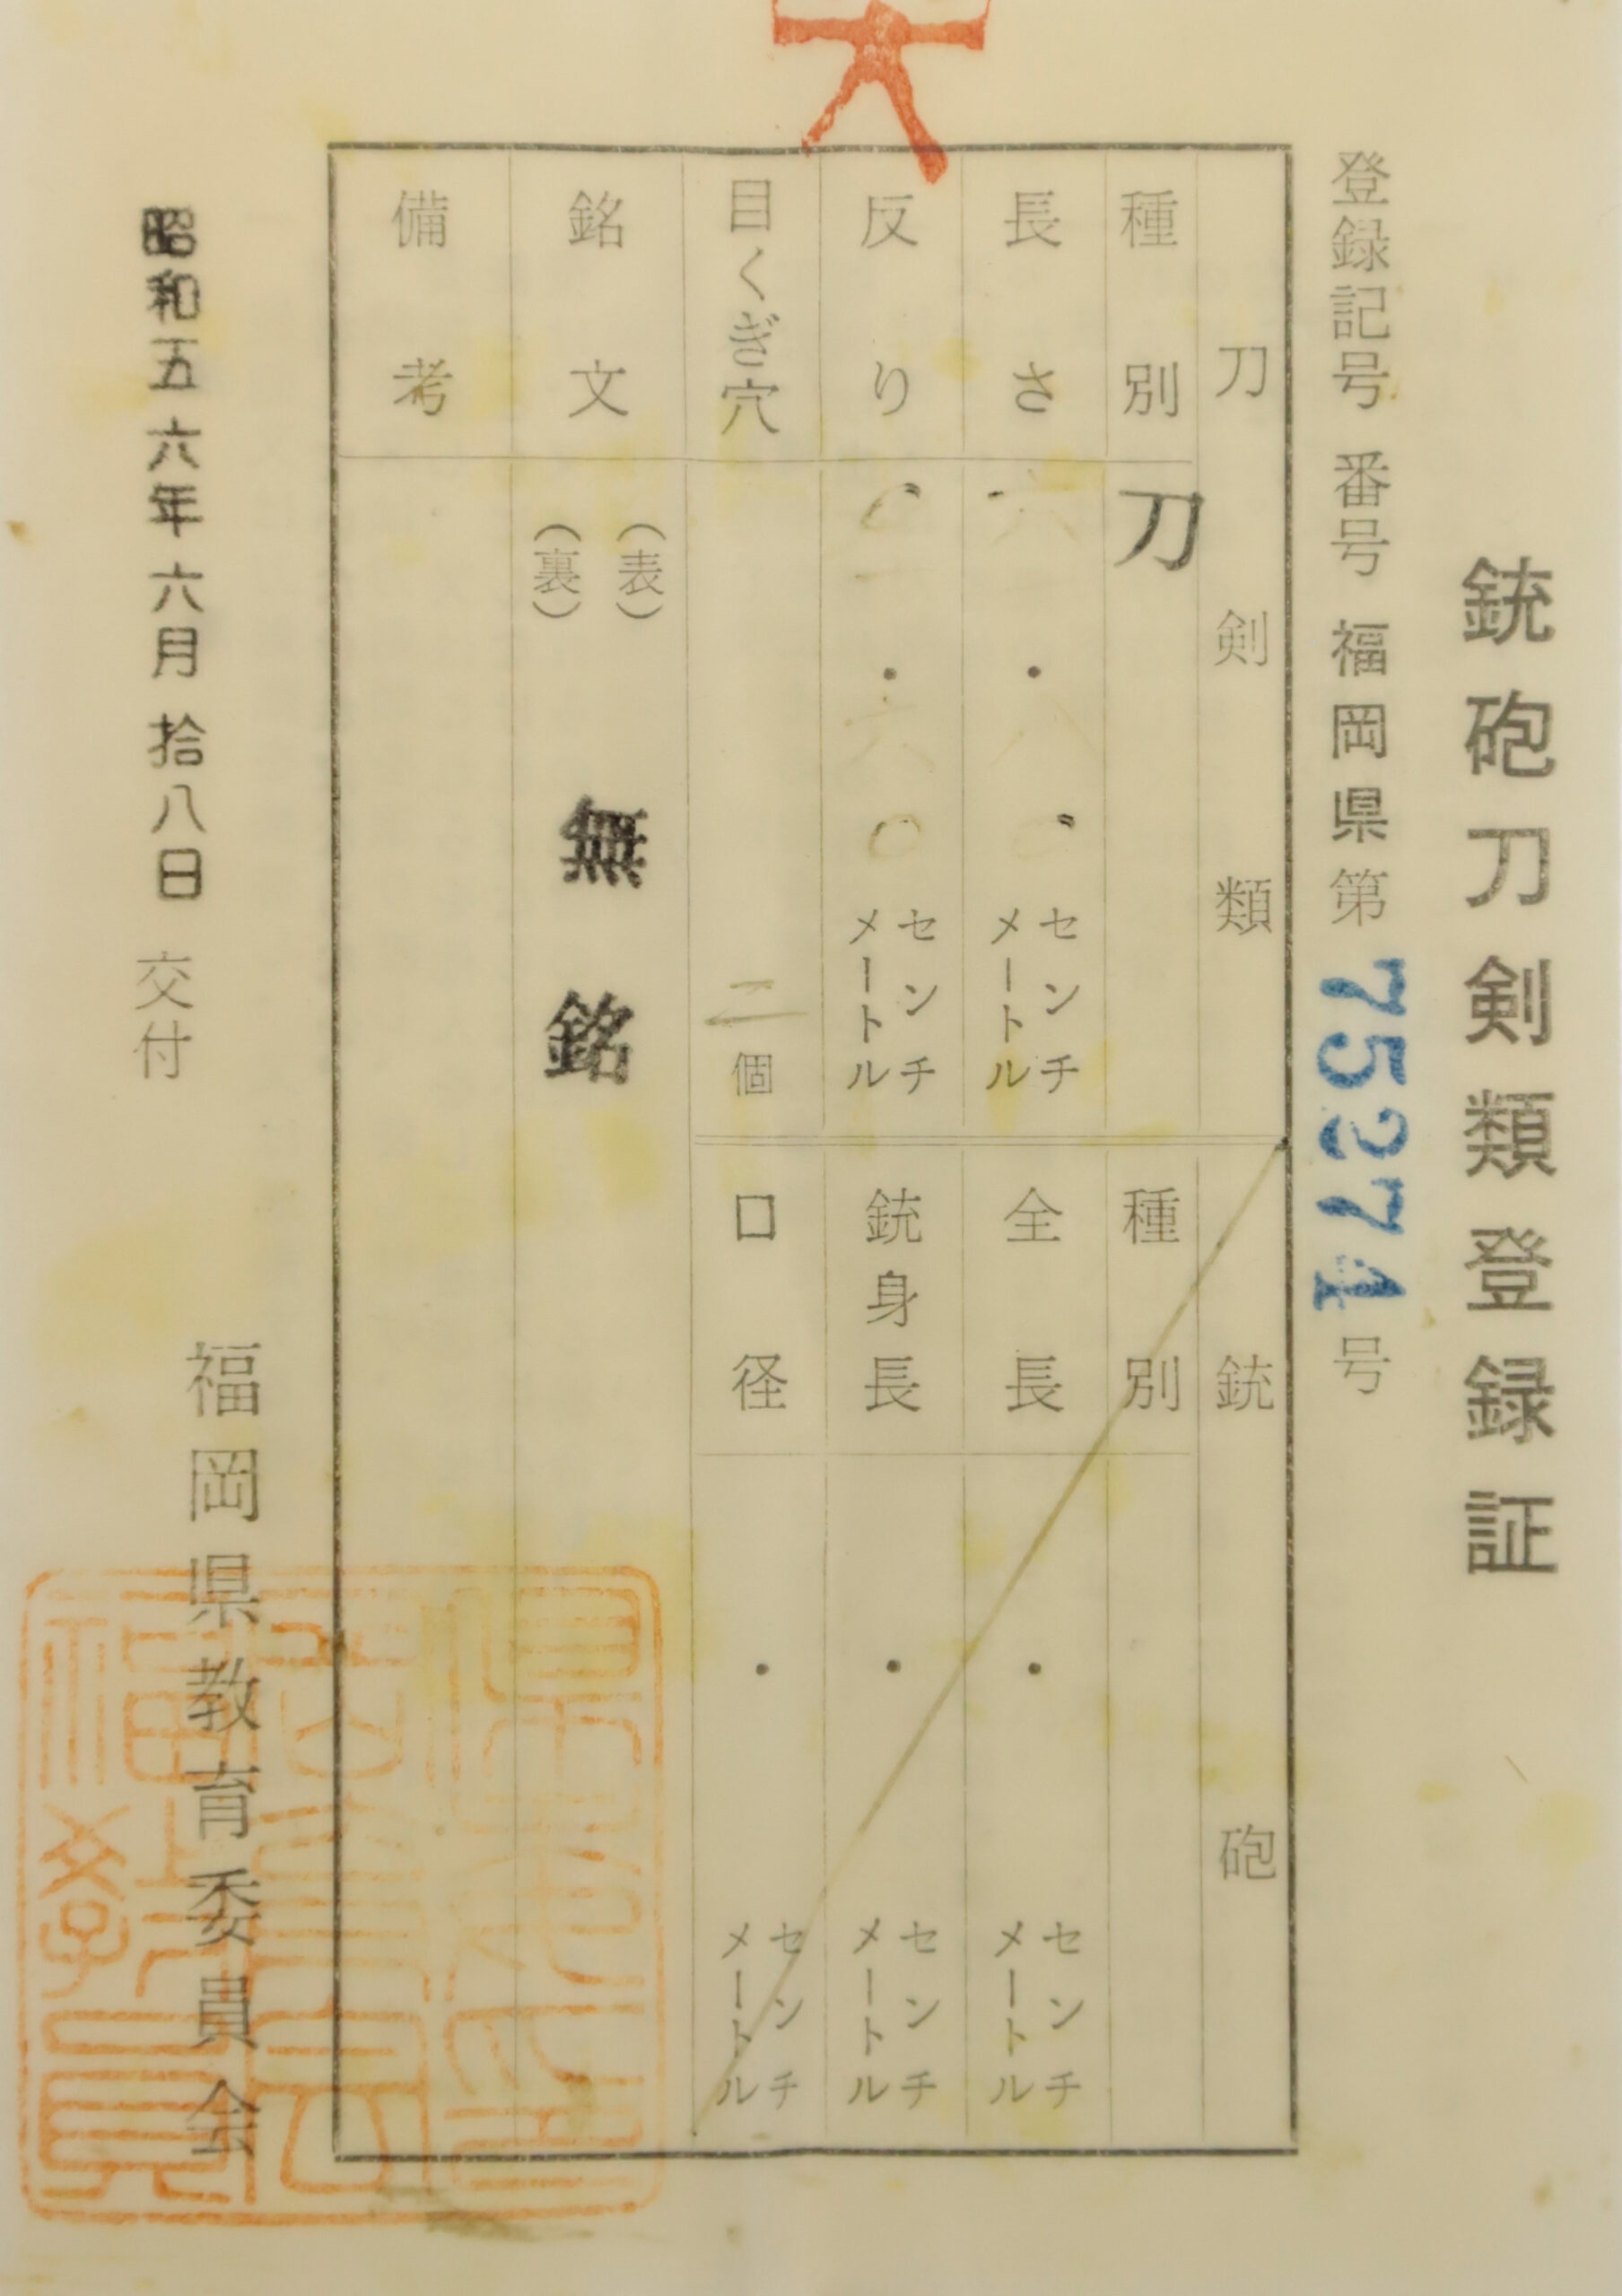 銃砲刀剣類登録証
登録記号番号 福岡県第75271号
刀剣類
種別 刀
長さ 六 . 八〇 センチメートル
反り 〇一 . 六〇 センチメートル
目くぎ穴 二個
銘文 (表) (裏) 無銘
備考
銃砲
種別
全長 . センチメートル
銃身長 . センチメートル
口径 . センチメートル
昭和五六年六月拾八日 交付
福岡県教育委員会